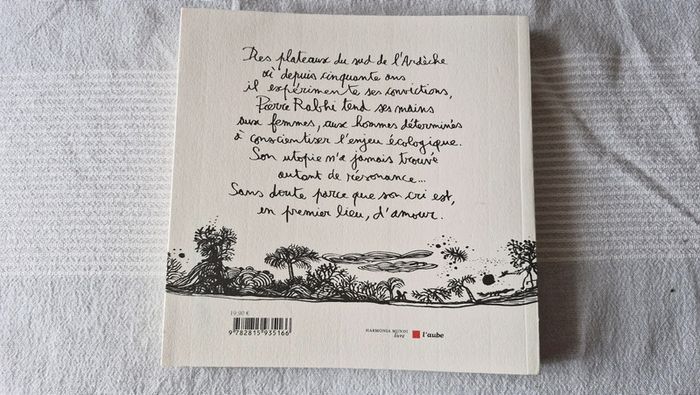 Des plateaux du sud de l'Ardèche
où depuis cinquante ans
il expérimente ses convictions,
Pierre Rabhi tend ses mains
aux femmes, aux hommes déterminés
à conscientiser l'enjeu écologique.
Son utopie n'a jamais trouvé
autant de résonance...
Sans doute parce que son cri est,
en premier lieu, d'amour.
19,90 €
9 782815 935166
HARMONIA MUNDI
livre
l'aube